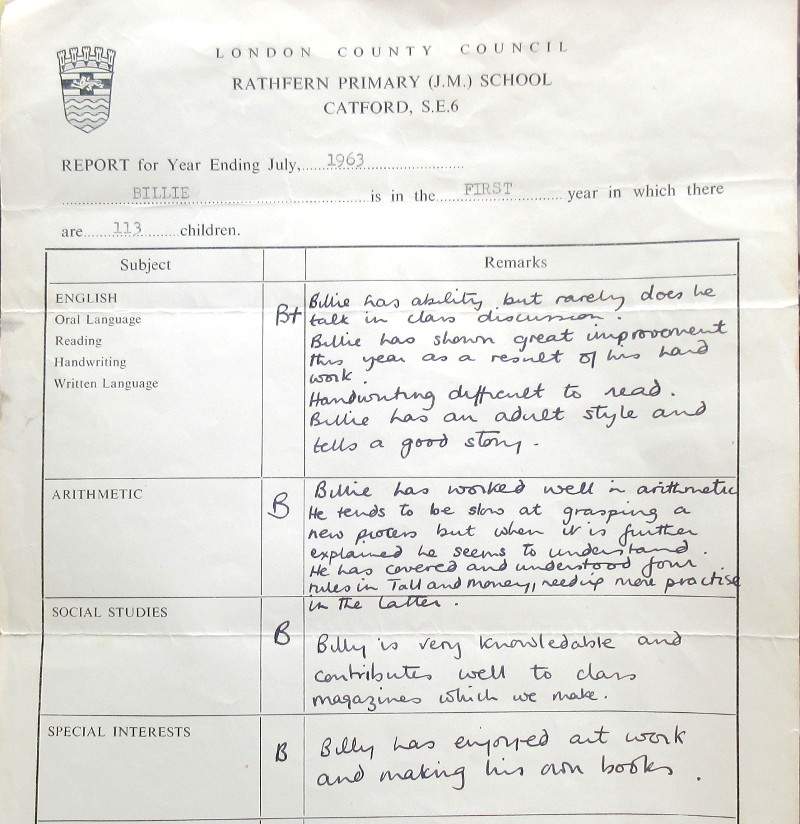 LONDON COUNTY COUNCIL
RATHFERN PRIMARY (J.M.) SCHOOL
CATFORD, S.E.6
REPORT for Year Ending July, 1963
BILLIE is in the FIRST year in which there
are 113 children.
Subject Remarks
ENGLISH
Oral Language
Reading
Handwriting
Written Language
B+
Billie has ability but rarely does he
talk in class discussion.
Billie has shown great improvement
this year as a result of his hard
work.
Handwriting difficult to read.
Billie has an adult style and
tells a good story.
ARITHMETIC
B
Billie has worked well in arithmetic
He tends to be slow at grasping a
new process but when it is further
explained he seems to understand.
He has covered and understood four
rules in T all and money, needing more practise
in the latter.
SOCIAL STUDIES
B
Billy is very knowledable and
contributes well to class
magazines which we make.
SPECIAL INTERESTS
B
Billy has enjoyed art work
and making his own books.